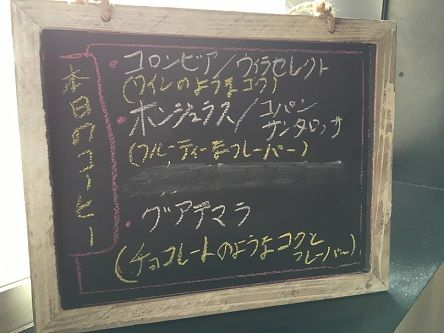 本日のコーヒー
・コロンビア/ウィラセレクト
(ワインのようなコク)
・ホンジュラス/コパン
サンタロッサ
(フルーティーなフレーバー)
・グアテマラ
(チョコレートのようなコクと
フレーバー)